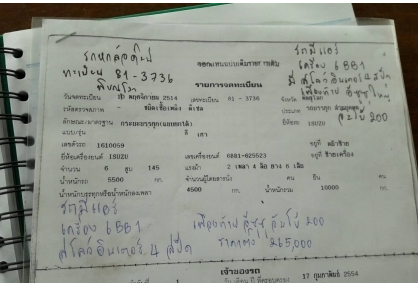 รถหกล้อดั้ม
ทะเบียน 81-3736
พิษณุโลก
รถมีแอร์
เครื่อง 6BB1
มีสโลว์อินเตอร์ 4 สปีด
เฟืองท้าย อีซูซุใหญ่
ลัมโบ้ 200
รายการจดทะเบียน
วันจดทะเบียน 10 พฤศจิกายน 2514 เลขทะเบียน 81 - 3736 จังหวัด พิษณุโลก
ชนิดเชื้อเพลิง ดีเซล
ลักษณะ/มาตรฐาน กระบะบรรทุก(ยกเทได้) ยี่ห้อรถ ISUZU
แบบ/รุ่น สี เทา
เลขตัวรถ 1610059 อยู่ที่
ยี่ห้อเครื่องยนต์ ISUZU เลขเครื่องยนต์ 6BB1-825523 อยู่ที่ ซ้ายเครื่อง
จำนวน 6 สูบ 145 แรงม้า 2 เพลา 4 ล้อ ยาง 6 เส้น
น้ำหนักรถ 5500 กก. จำนวนผู้โดยสารนั่ง คน ยืน คน
น้ำหนักบรรทุกหรือน้ำหนักลงเพลา 4500 กก. น้ำหนักรวม 10000 กก.
รถมีแอร์
เครื่อง 6BB1 เฟืองท้าย อีซูซุ ลัมโบ้ 200
สโลว์อินเตอร์ 4 สปีด ราคา 265,000
เจ้าของรถ
17 กุมภาพันธ์ 2554